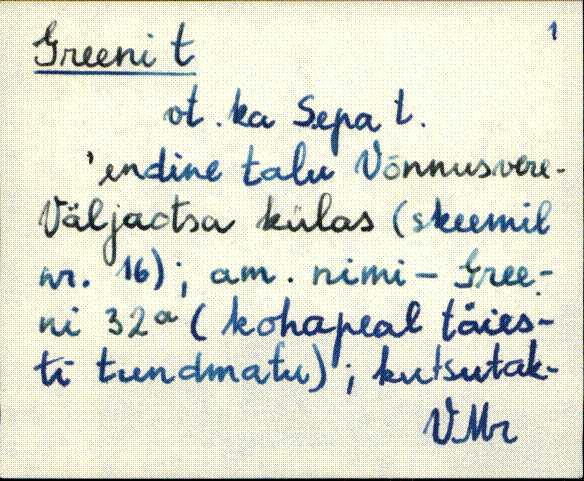 1
Greeni t
vt. ka Sepa t.
'endine talu Võnnusvere-
Väljaotsa külas (skeemil
nr. 16); am. nimi - Gree-
ni 32a (kohapeal täies-
ti tundmatu); kutsutak-
VMr